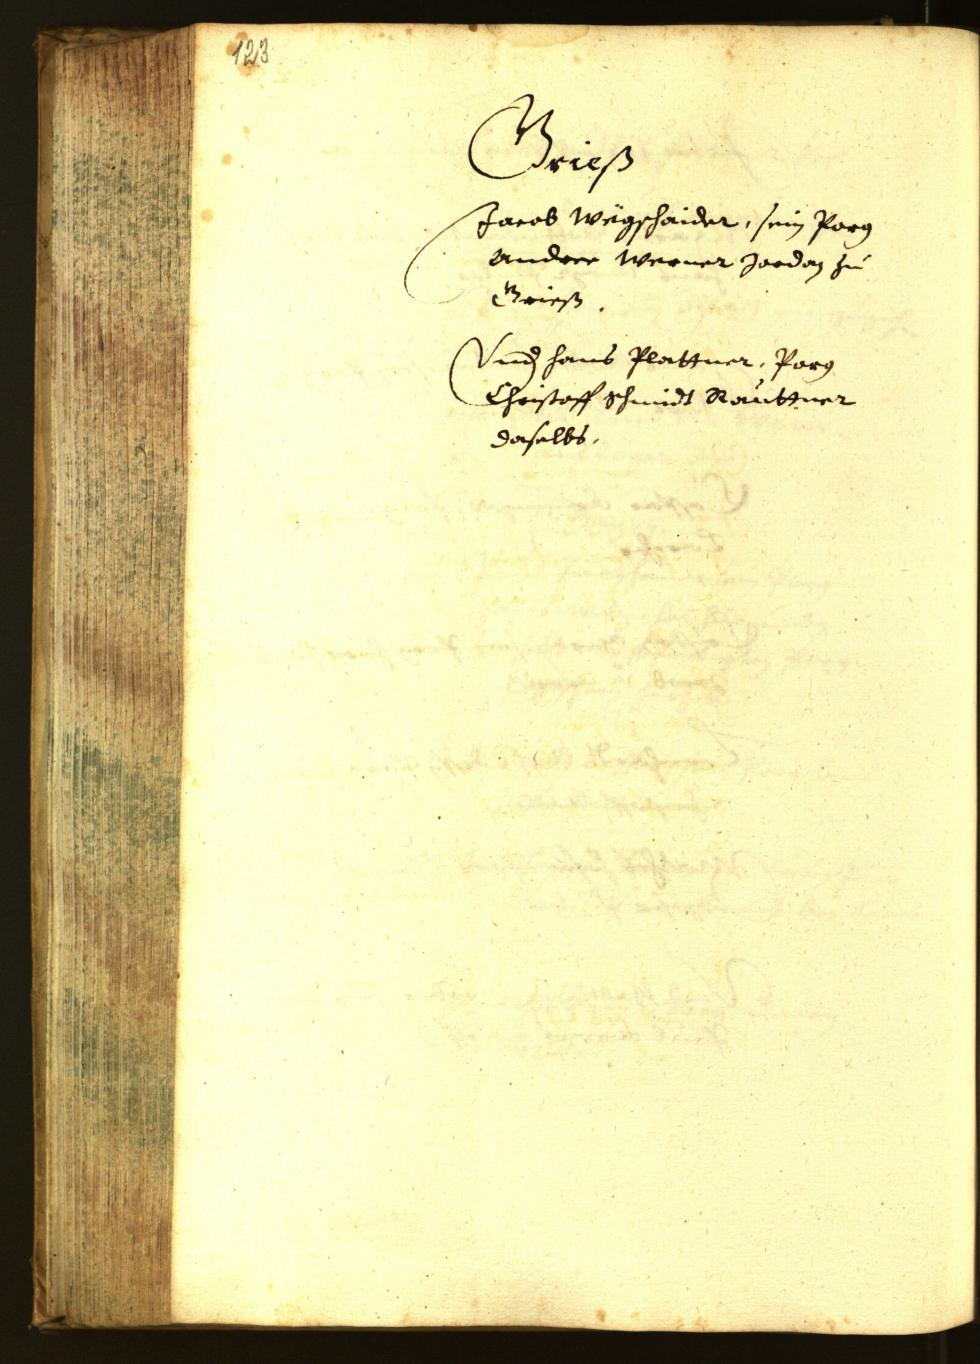 123
Grieß
Jacob Wegschaider, sein Porg
Andree Werner Jordan zu
Grieß.
Vnnd hans Plattner, Porg
Christoff Schmidt Rauttner
daselbs.